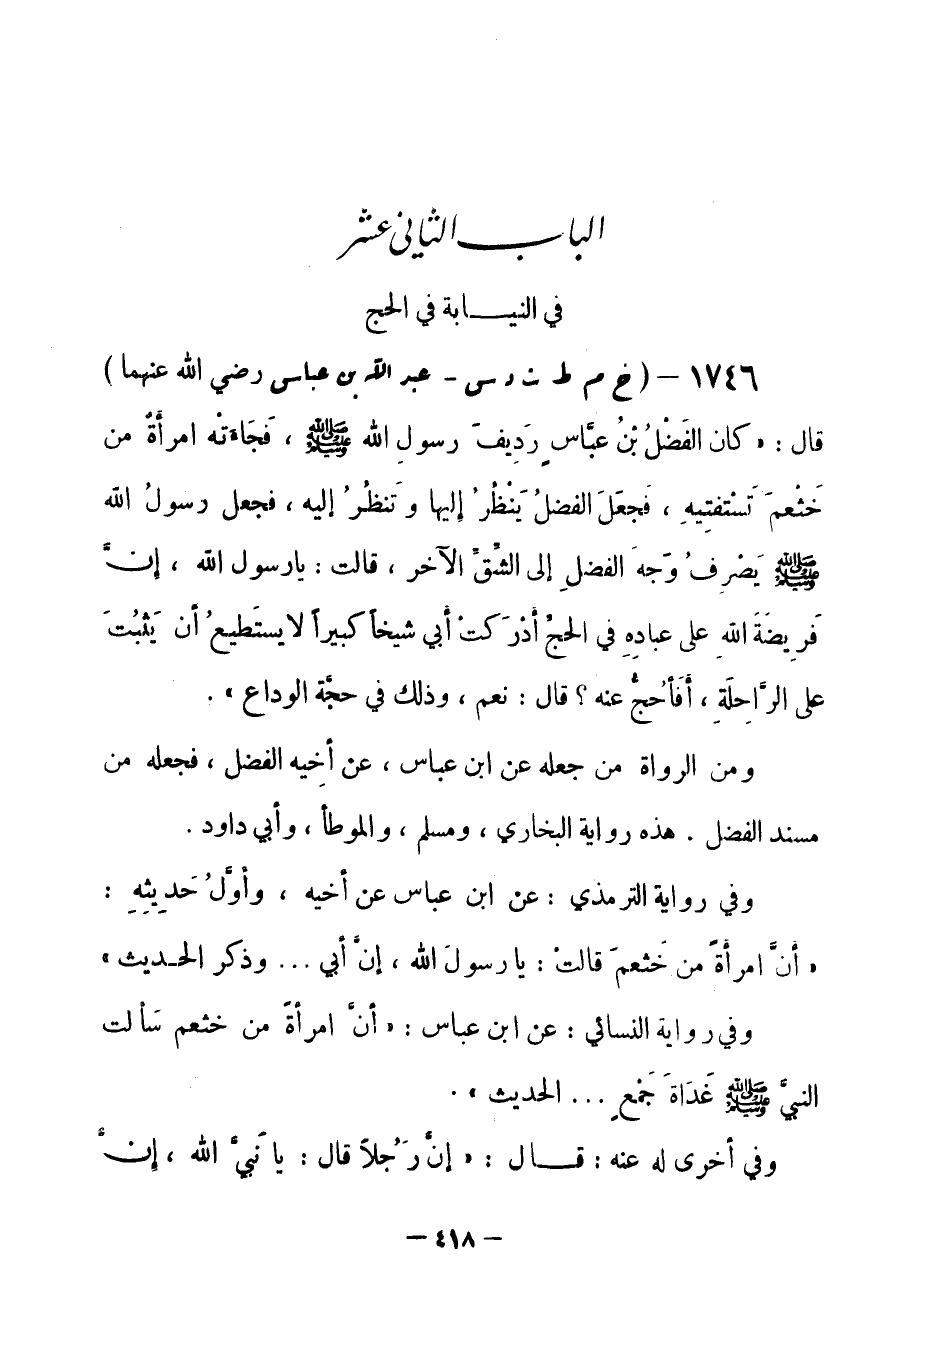 الباب الثاني عشر
في النيابة في الحج
١٧٤٦ – (خ م ط ت د س - عبد الله بن عباس رضي الله عنهما)
قال : « كان الفَضْلُ بْنُ عبَّاسٍ رَدِيفَ رسولِ الله ﷺ ، فَجَاءَتْه امرأَةٌ من
خَثْعمَ تَسْتفتِيهِ ، فَجعَلَ الفضلُ يَنْظُرُ إليها وتَنظُرُ إليه ، فجعل رسولُ الله
ﷺ يَصْرِفُ وَجْهَ الفضلِ إلى الشِّقِّ الآخرِ ، قالت : يارسول الله ، إنَّ
فَرِيضَةَ اللهِ على عبادِهِ في الحجِّ أدْرَكتْ أبي شيخاً كبيراً لايستَطيعُ أن يَثْبُتَ
على الرَّاحِلَةِ ، أَفَأَحجُّ عنه ؟ قال : نعم ، وذلك في حجَّة الوداع » .
ومن الرواة من جعله عن ابن عباس ، عن أخِيه الفضل ، فجعله من
مسند الفضل . هذه رواية البخاري ، ومسلم ، والموطأ ، وأبي داود .
وفي رواية الترمذي : عن ابن عباس عن أخيه ، وأوَّلُ حَديِثِهِ :
« أنَّ امرأةً من خَثعمَ قالتْ : يا رسولَ الله ، إنَّ أبي ... وذكر الحديث »
وفي رواية النسائي : عن ابن عباس : « أنَّ امرأةً من خثعم سَألت
النبيَّ ﷺ غَدَاةَ جَمْعٍ ... الحديث » .
وفي أخرى له عنه : قال : « إنَّ رَجُلاً قال : يا نَبيَّ الله ، إنَّ
– ٤١٨ –